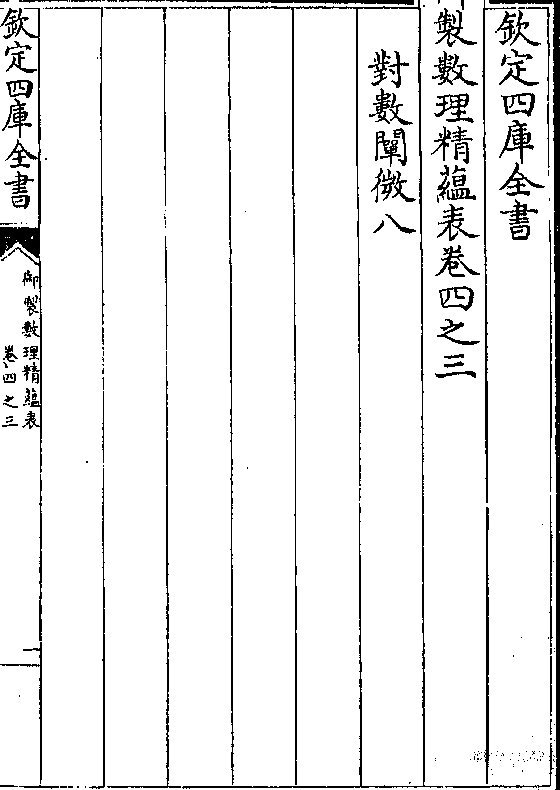 欽定四庫全書
製數理精蘊表卷四之三
對數闡微八
欽定四庫全書
御製數理精蘊表
卷四之三
一